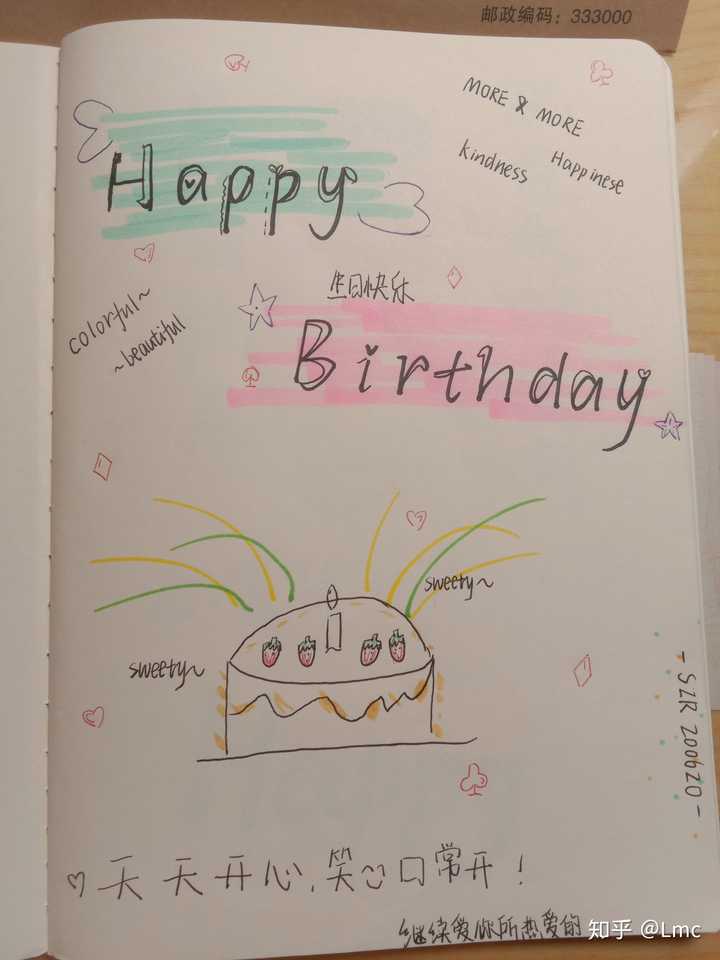 邮政编码：333000
MORE & MORE
kindness
Happinese
Happy
生日快乐
colorful~
~beautiful
Birthday
sweety~
sweety~
- SZR 200620 -
天天开心，笑口常开！
继续爱你所热爱的
知乎 @Lmc